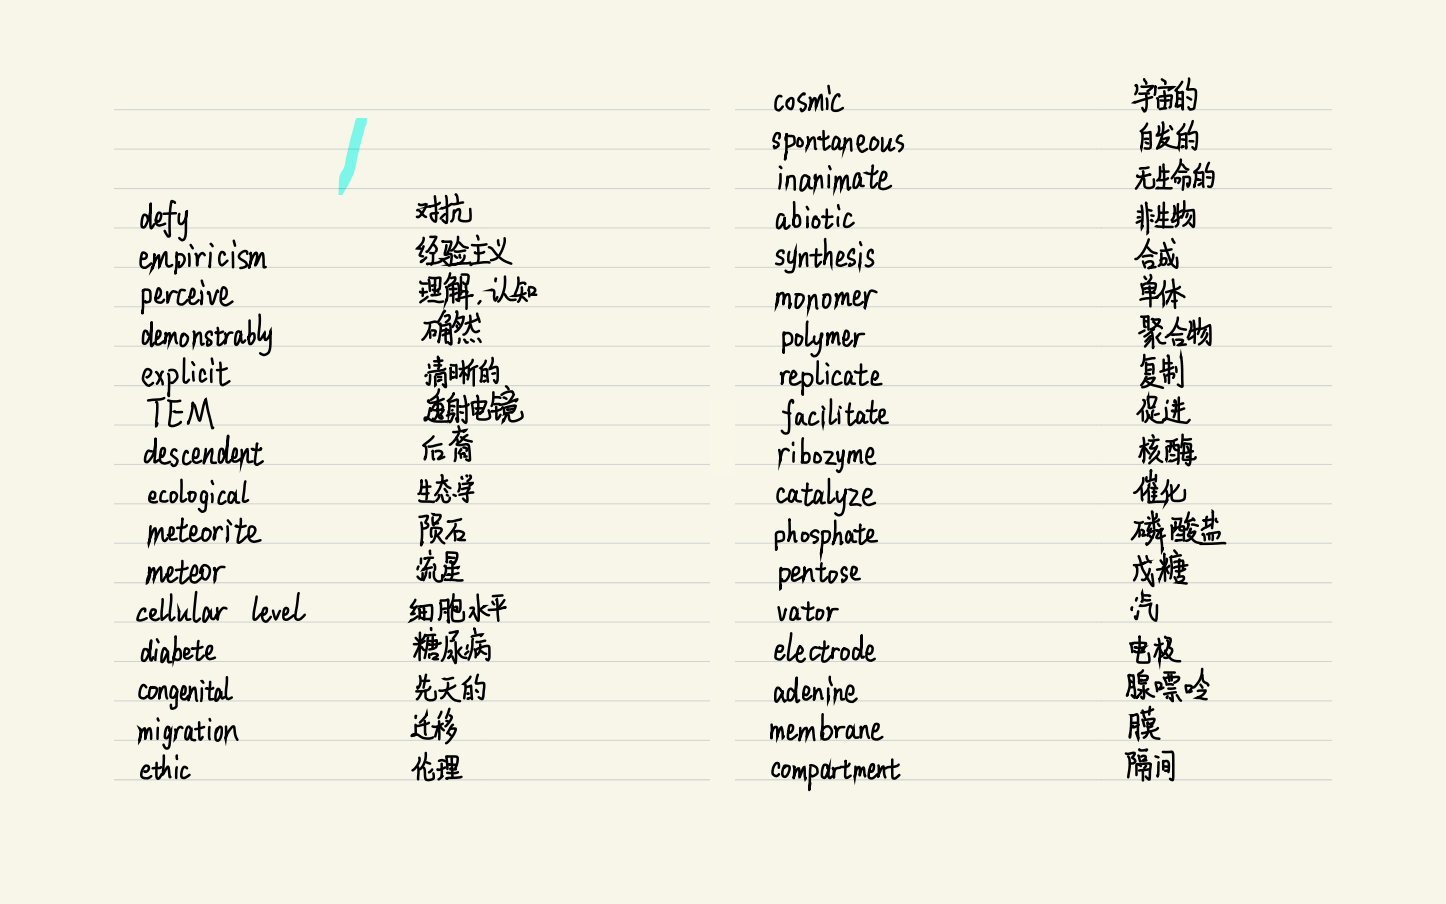 defy 对抗
empiricism 经验主义
perceive 理解,认知
demonstrably 确然
explicit 清晰的
TEM 透射电镜
descendent 后裔
ecological 生态学
meteorite 陨石
meteor 流星
cellular level 细胞水平
diabete 糖尿病
congenital 先天的
migration 迁移
ethic 伦理
cosmic 宇宙的
spontaneous 自发的
inanimate 无生命的
abiotic 非生物
synthesis 合成
monomer 单体
polymer 聚合物
replicate 复制
facilitate 促进
ribozyme 核酶
catalyze 催化
phosphate 磷酸盐
pentose 戊糖
vator 汽
electrode 电极
adenine 腺嘌呤
membrane 膜
compartment 隔间